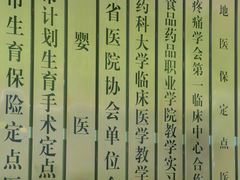 地医保定点医
疼痛学会第一临床中心合作
食品药品职业学院教学实习
药科大学临床医学教学
省医院协会单位
婴医
计划生育手术定点
市生育保险定点医